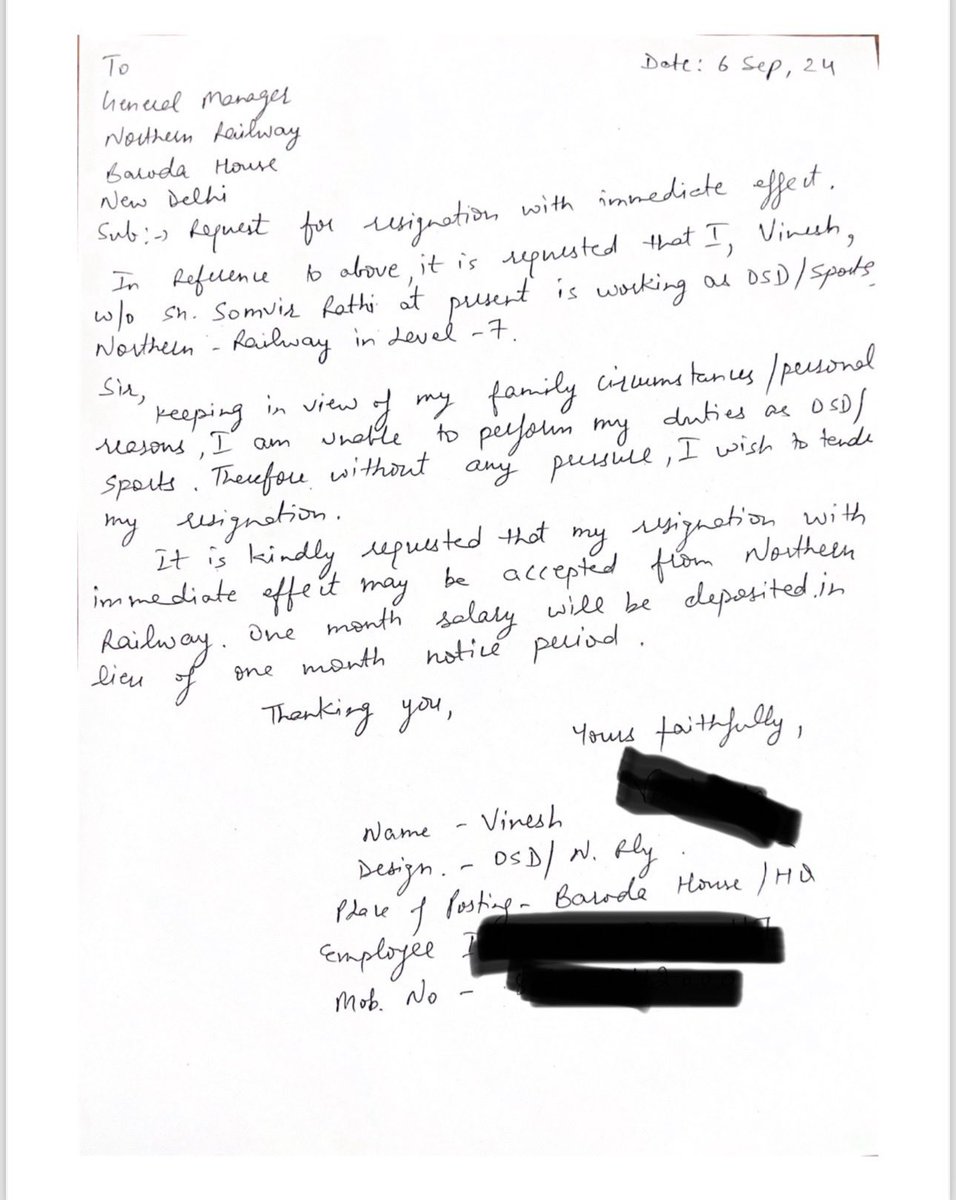 To
Date: 6 Sep, 24
General Manager
Northern Railway
Baroda House
New Delhi
Sub:→ Request for resignation with immediate effect.
In Reference to above, it is requested that I, Vinesh,
w/o Sh. Somvir Rathi at present is working as OSD/Sports
Northern - Railway in Level - 7.
Sir,
Keeping in view of my family circumstances/personal
reasons, I am unable to perform my duties as OSD/
Sports. Therefore without any pressure, I wish to tende
my resignation.
It is kindly requested that my resignation with
immediate effect may be accepted from Northern
Railway. One month salary will be deposited in
lieu of one month notice period.
Thanking you,
Yours faithfully,
Name - Vinesh
Design. - OSD/ N. Rly.
Place of Posting - Baroda House /HQ
Employee
Mob. No -